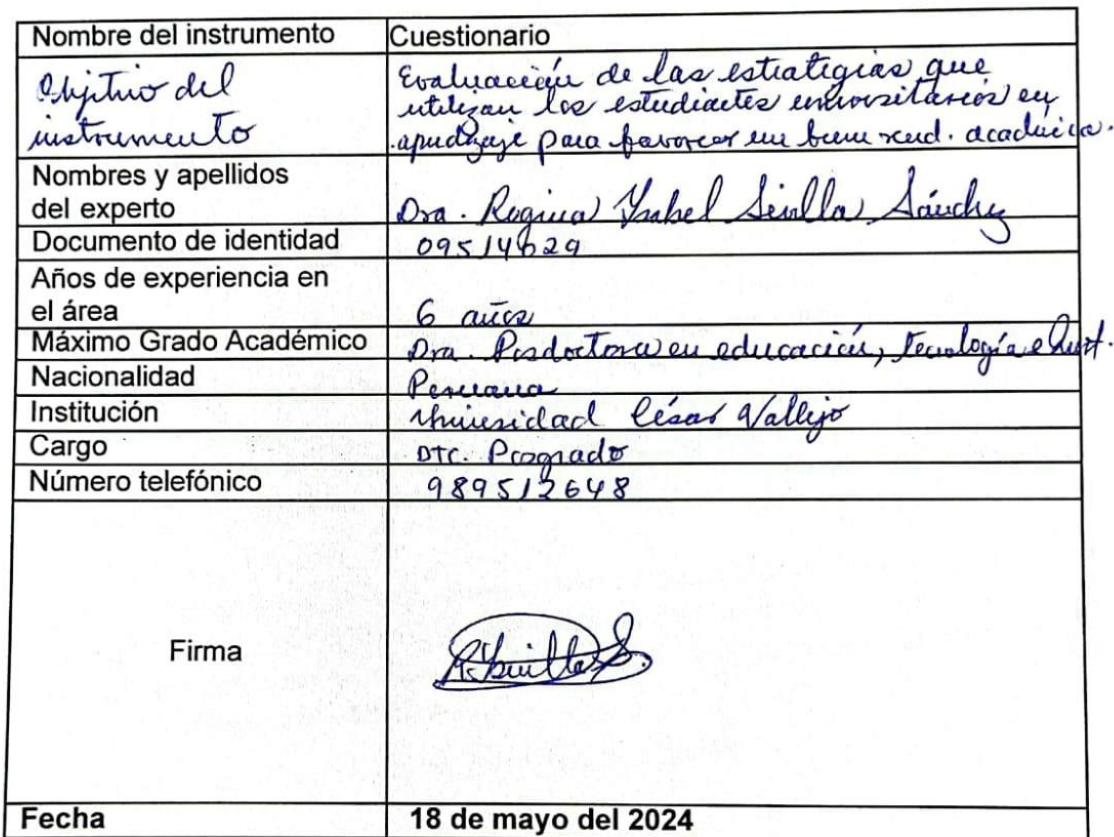 Nombre del instrumento Cuestionario
Objetivo del
instrumento
Evaluación de las estrategias que
utilizan los estudiantes universitarios en
aprendizaje para favorecer un buen rend. académico.
Nombres y apellidos
del experto
Dra. Regina Ysabel Sevilla Sánchez
Documento de identidad 09514629
Años de experiencia en
el área
6 años
Máximo Grado Académico Dra. Posdoctora en educación, Tecnología e
Nacionalidad Peruana
Institución Universidad César Vallejo
Cargo DTC. Posgrado
Número telefónico 989512648
Firma
Fecha 18 de mayo del 2024